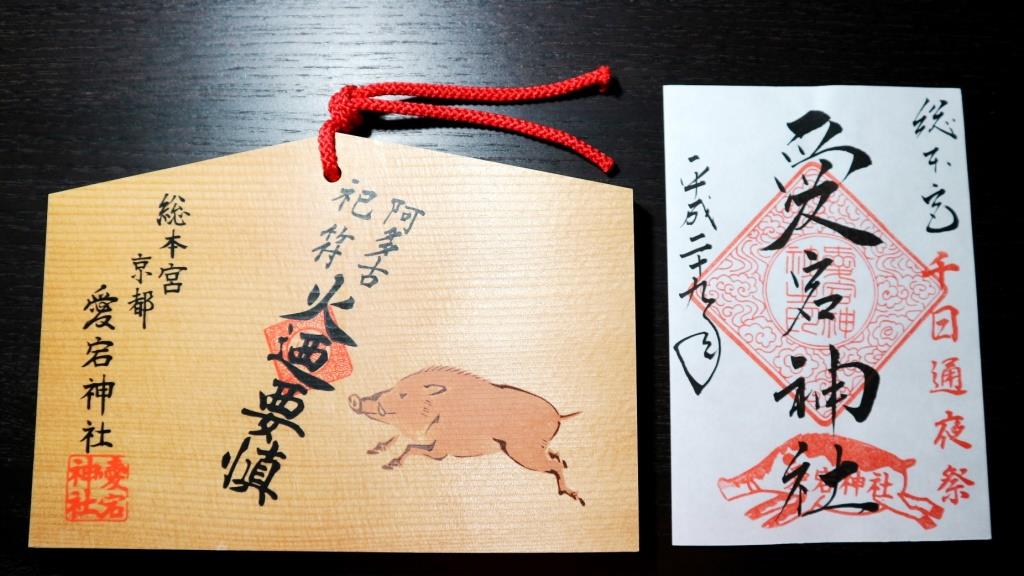 阿多古
祀符
火迺要慎
総本宮
京都
愛宕神社
愛宕
神社
総本宮
千日通夜祭
愛宕神社
愛宕神社
平成二十九年